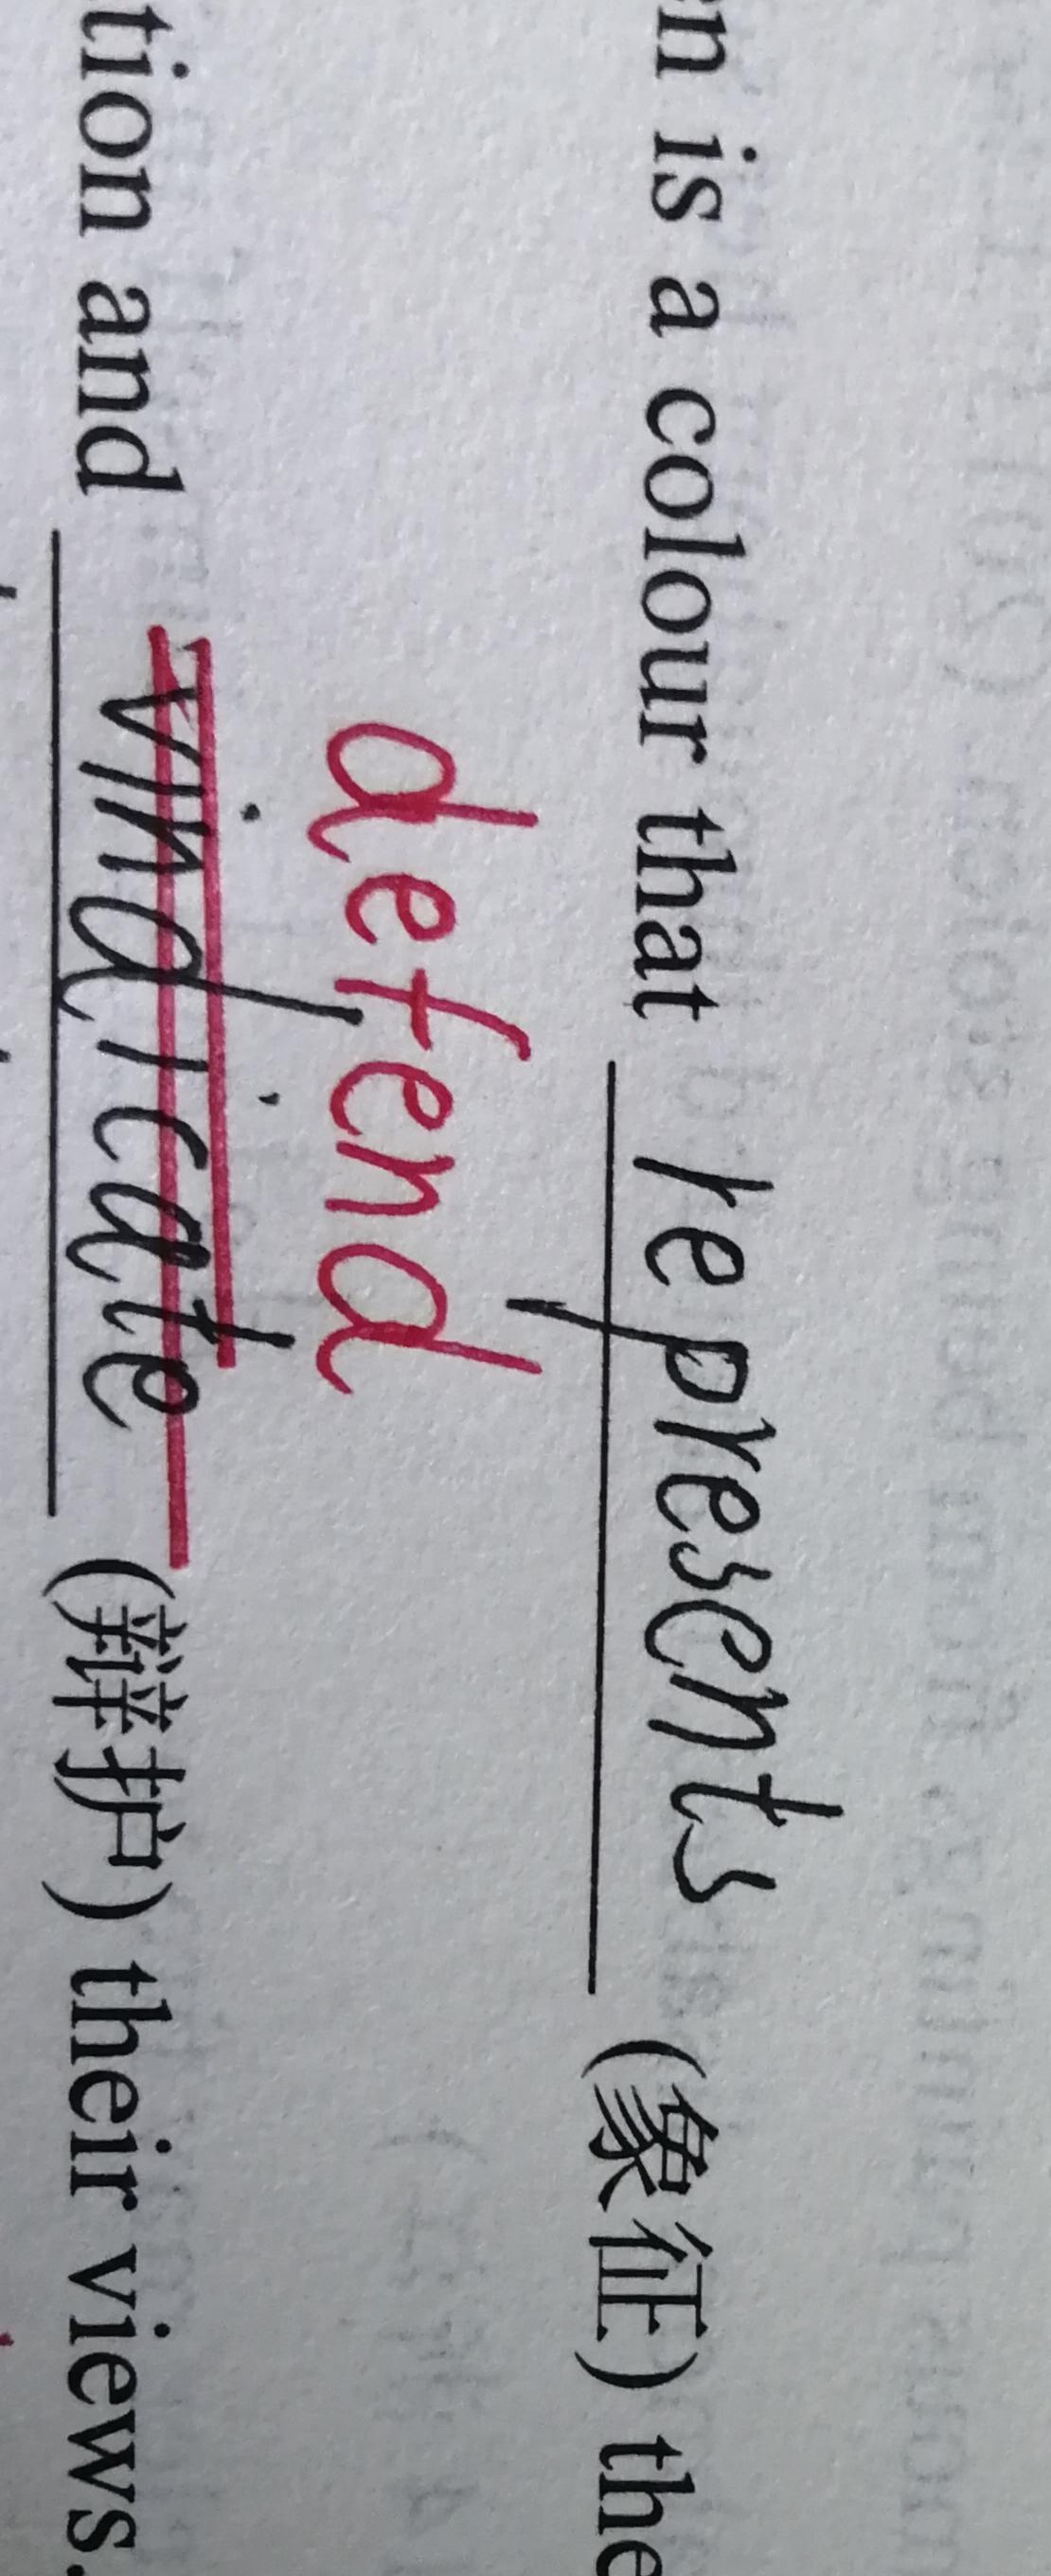 n is a colour that represents (象征) the
defend
tion and vindicate (辩护) their views.